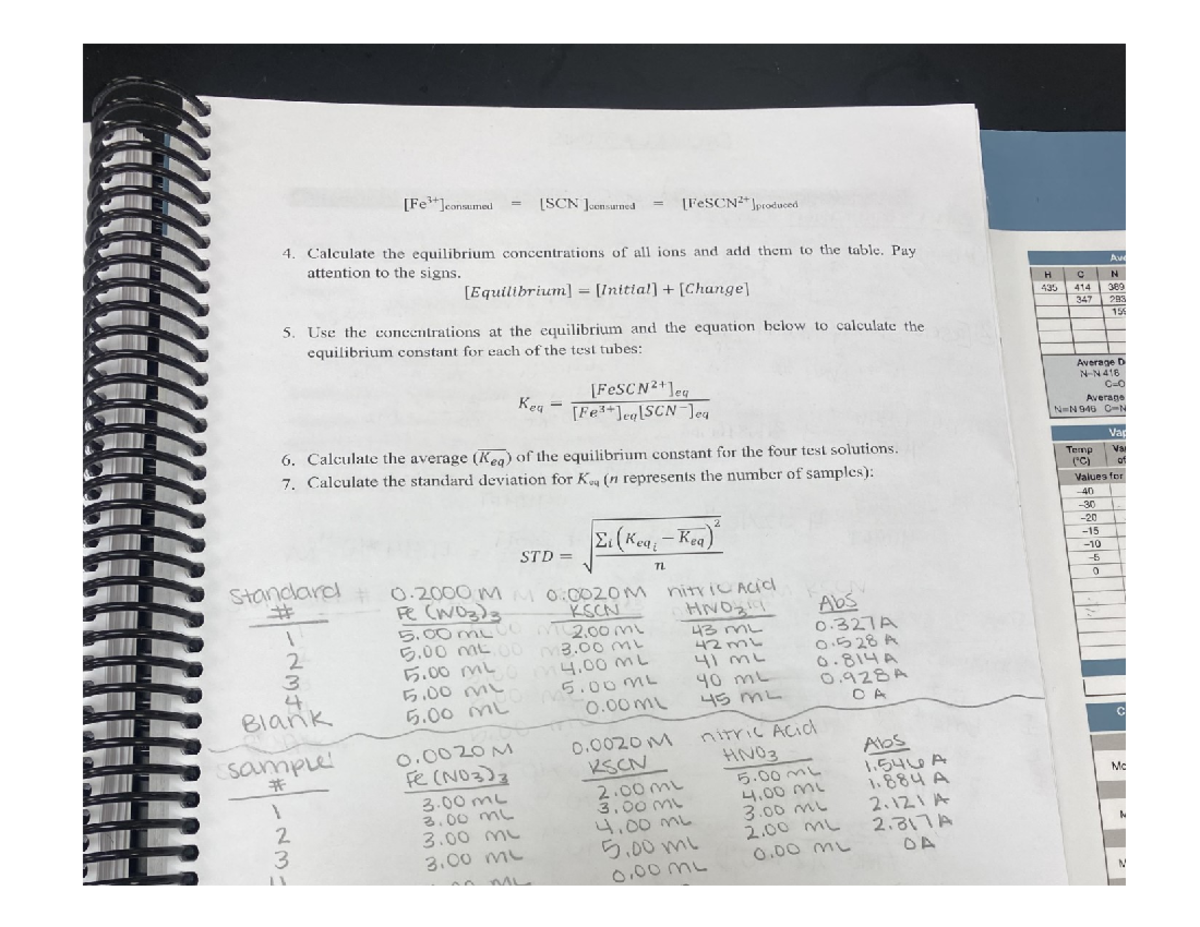 [Fe³⁺]consumed = [SCN ]consumed = [FeSCN²⁺]produced
4. Calculate the equilibrium concentrations of all ions and add them to the table. Pay
attention to the signs.
[Equilibrium] = [Initial] + [Change]
5. Use the concentrations at the equilibrium and the equation below to calculate the
equilibrium constant for each of the test tubes:
Keq = [FeSCN²⁺]eq / [Fe³⁺]eq[SCN⁻]eq
6. Calculate the average (K̅eq) of the equilibrium constant for the four test solutions.
7. Calculate the standard deviation for Keq (n represents the number of samples):
STD = √(Σi(Keqi − K̅eq)² / n)
Standard # 0.2000 M Fe(NO3)3 0.0020M KSCN nitric Acid HNO3 Abs
1 5.00 mL 2.00 mL 43 mL 0.327A
2 5.00 mL 3.00 mL 42 mL 0.528 A
3 5.00 mL 4.00 mL 41 mL 0.814 A
4 5.00 mL 5.00 mL 40 mL 0.928A
Blank 5.00 mL 0.00mL 45 mL 0 A
sample # 0.0020 M Fe(NO3)3 0.0020 M KSCN nitric Acid HNO3 Abs
1 3.00 mL 2.00 mL 5.00 mL 1.546 A
2 3.00 mL 3.00 mL 4.00 mL 1.884 A
3 3.00 mL 4.00 mL 3.00 mL 2.121 A
3.00 mL 5.00 mL 2.00 mL 2.317A
mL 0.00 mL 0.00 mL 0A
H C N
435 414 389
347 293
Average
N-N 418
C=O
Average
N=N 946
Temp
(°C)
Values for
-40
-30
-20
-15
-10
-5
0
C